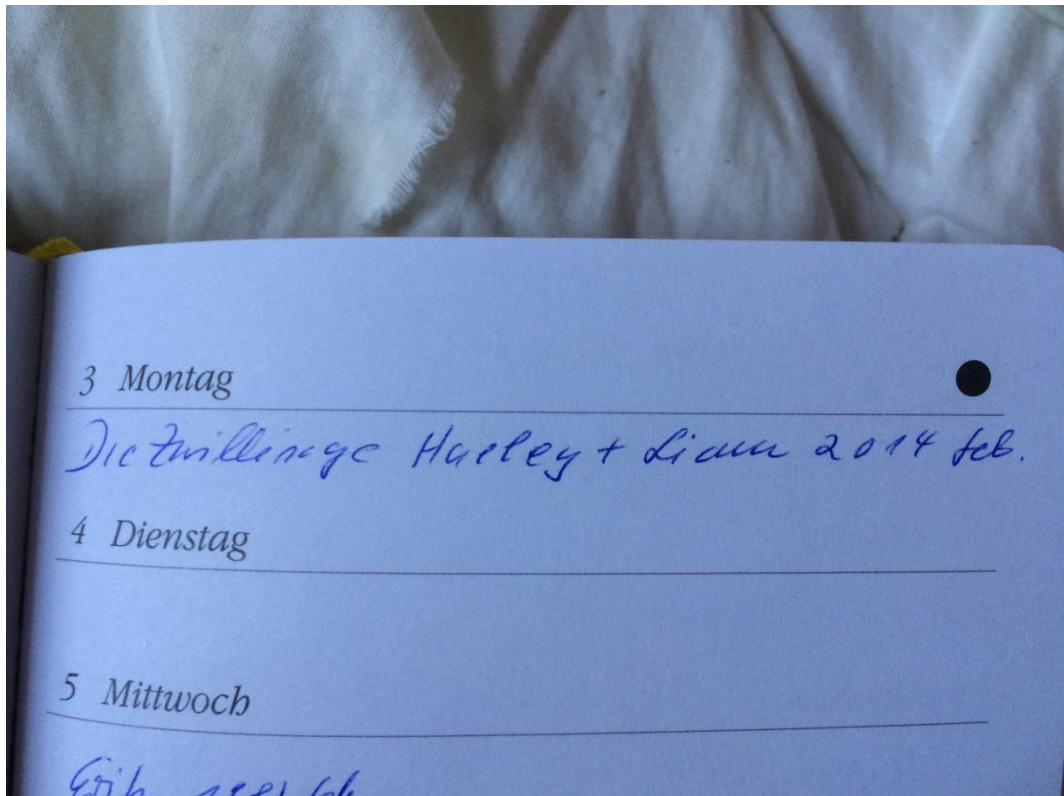 3 Montag
Die Zwillinge Harley + Liam 2014 geb.
4 Dienstag
5 Mittwoch